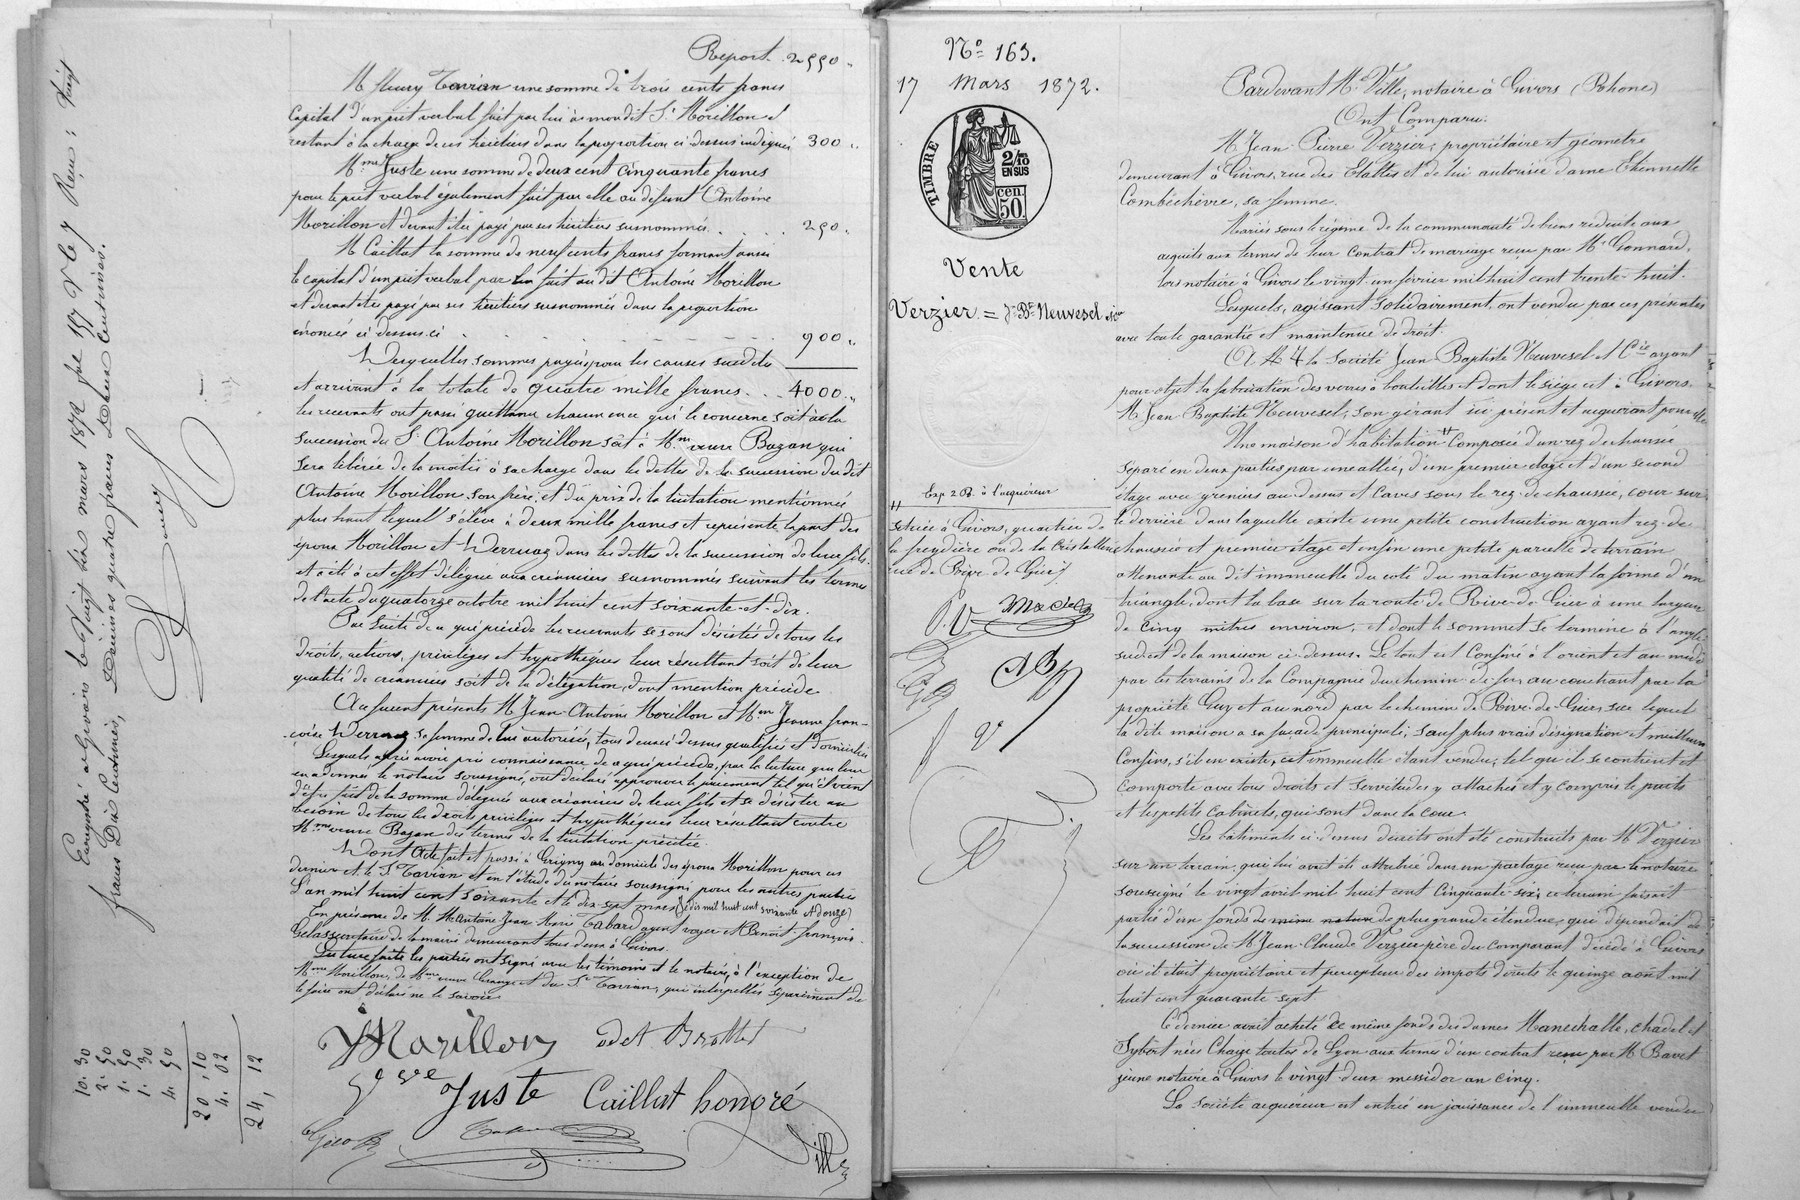 Report. 2550 "
M fleury Tavian une somme de trois cents francs
Capital d'un prêt verbal fait par lui à mondit S. Morillon et
restant à la charge de ces héritiers dans la proportion ci dessus indiquée 300 "
Mme Juste une somme de deux cent cinquante francs
pour le prêt verbal également fait par elle au défunt Antoine
Morillon et devant être payé par ses héritiers surnommés. . . . . . 250 "
M Caillat la somme de neuf cents francs formant aussi
le capital d'un prêt verbal par lui fait au dit Antoine Morillon
et devant être payé par ses héritiers susnommés dans la proportion
énoncée ci dessus ci . . . . . . 900 "
Desquelles sommes payées pour les causes susdites
et arrivant à la totale de quatre mille francs. . . 4000 "
les recevants ont passé quittance chacun en ce qui le concerne soit à la
succession du S. Antoine Morillon soit à Mme veuve Bazan qui
sera libérée de la moitié à sa charge dans les dettes de la succession du dit
Antoine Morillon son frère, et du prix de la licitation mentionnée
plus haut lequel s'élève à deux mille francs et représente la part des
époux Morillon et Derruaz dans les dettes de la succession de leur fils
et a été à cet effet délégué aux créanciers susnommés suivant les termes
de l'acte du quatorze octobre mil huit cent soixante-et-dix.
Par suite de ce qui précède les recevants se sont désistés de tous les
droits, actions, privilèges et hypothèques leur résultant soit de leur
qualité de créanciers soit de la délégation, dont mention précède
Au furent présents M Jean-Antoine Morillon et Mme Jeanne fran-
-coise Derruaz sa femme de lui autorisée, tous deux ci dessus qualifiés et domiciliés
Lesquels après avoir pris connaissance de ce qui précède, par la lecture que leur
en a donnée le notaire soussigné, ont déclaré approuver le paiement tel qu'il vient
d'être fait de la somme déléguée aux créanciers de leur fils et se désister au
besoin de tous les droits privilèges et hypothèques leur résultant contre
Mme veuve Bazan des termes de la licitation précitée
Dont Acte fait et passé à Grigny au domicile des époux Morillon pour ces
derniers et le S Tavian et en l'étude du notaire soussigné pour les autres parties
L'an mil huit cent soixante et le dix sept mars (Je dis mil huit cent soixante et douze)
En présence de M. M Antoine Jean Marie Tabard agent voyer et Benoit françois
Gelas secrétaire de la mairie demeurant tous deux à Givors
Lecture faite les parties ont signé avec les témoins et le notaire, à l'exception de
Mme Morillon, de Mme veuve et du S. Tavian, qui interpellés séparément de
le faire ont déclaré ne le savoir
Morillon
Vve Juste Caillat honoré
Ville
Enregistré à Givors le Vingt six mars 1872 folo 157 V C 7 Reçu : huit
francs Dix Centimes, Décimes quatre francs Deux Centimes.
10. 30
2. 50
1. 50
1. 30
4. 50
20, 10
4. 02
24, 12
No 163.
17 Mars 1872.
TIMBRE
2/10
EN SUS
cen.
50.
Vente
Verzier = Jn Bte Neuvesel et Cie
Exp 2 B. à l'acquéreur
située à Givors, quartier de
la freydière ou de la Cristallerie
rue de Rive de Gier
P. V
Pardevant Me Ville, notaire à Givors (Rhone)
Ont Comparu:
M Jean Pierre Verzier, propriétaire et géomètre
demeurant à Givors, rue des Etables et de lui autorisée dame Ethennette
Combéchèvre, sa femme.
Mariés sous le régime de la communauté de biens réduite aux
acquêts aux termes de leur contrat de mariage reçu par Me Gonnard,
lors notaire à Givors le vingt-un février mil huit cent trente-huit.
Lesquels, agissant solidairement, ont vendu par ces présentes
avec toute garantie et maintenue de droit:
A la société Jean-Baptiste Neuvesel et Cie ayant
pour objet la fabrication des verres à bouteilles et dont le siège est à Givors
M. Jean Baptiste Neuvesel, son gérant ici présent et acquérant pour elle
Une maison d'habitation Composée d'un rez de chaussée
séparé en deux parties par une allée, d'un premier étage et d'un second
étage avec greniers au dessus et caves sous le rez-de-chaussée, cour sur
le derrière dans laquelle existe une petite construction ayant rez-de-
chaussée et premier étage et enfin une petite parcelle de terrain
attenante au dit immeuble du coté du matin ayant la forme d'un
triangle, dont la base sur la route de Rive-de-Gier à une largeur
de cinq mètres environ, et dont le sommet se termine à l'angle
sud est de la maison ci-dessus. Le tout est Confiné à l'orient et au midi
par les terrains de la Compagnie du chemin de fer, au couchant par la
propriété Guy et au nord par le chemin de Rive-de-Gier, sur lequel
la dite maison a sa façade principale; Sauf plus vrais désignation et meilleurs
Confins, s'il en existe, cet immeuble étant vendu, tel qu'il se contient et
comporte avec tous droits et servitudes y attachés et y compris le puits
et les petits cabinets, qui sont dans la cour
Les bâtiments ci-dessus décrits ont été construits par M Verzier
sur un terrain, qui lui avait été attribué dans un partage reçu par le notaire
soussigné le vingt avril mil huit cent cinquante six; ce terrain faisait
partie d'un fonds de même nature de plus grande étendue, qui dépendait de
la succession de M Jean-Claude Verzier père du comparant, décédé à Givors
où il était propriétaire et percepteur des impots directs le quinze août mil
huit cent quarante sept
Ce dernier avait acheté ce même fonds des dames Manéchalle, Chadel et
Sybert nées Chaize toutes de Lyon aux termes d'un contrat reçu par M Bavet
jeune notaire à Givors le vingt-deux messidor an cinq.
La société acquéreur est entrée en jouissance de l'immeuble vendu